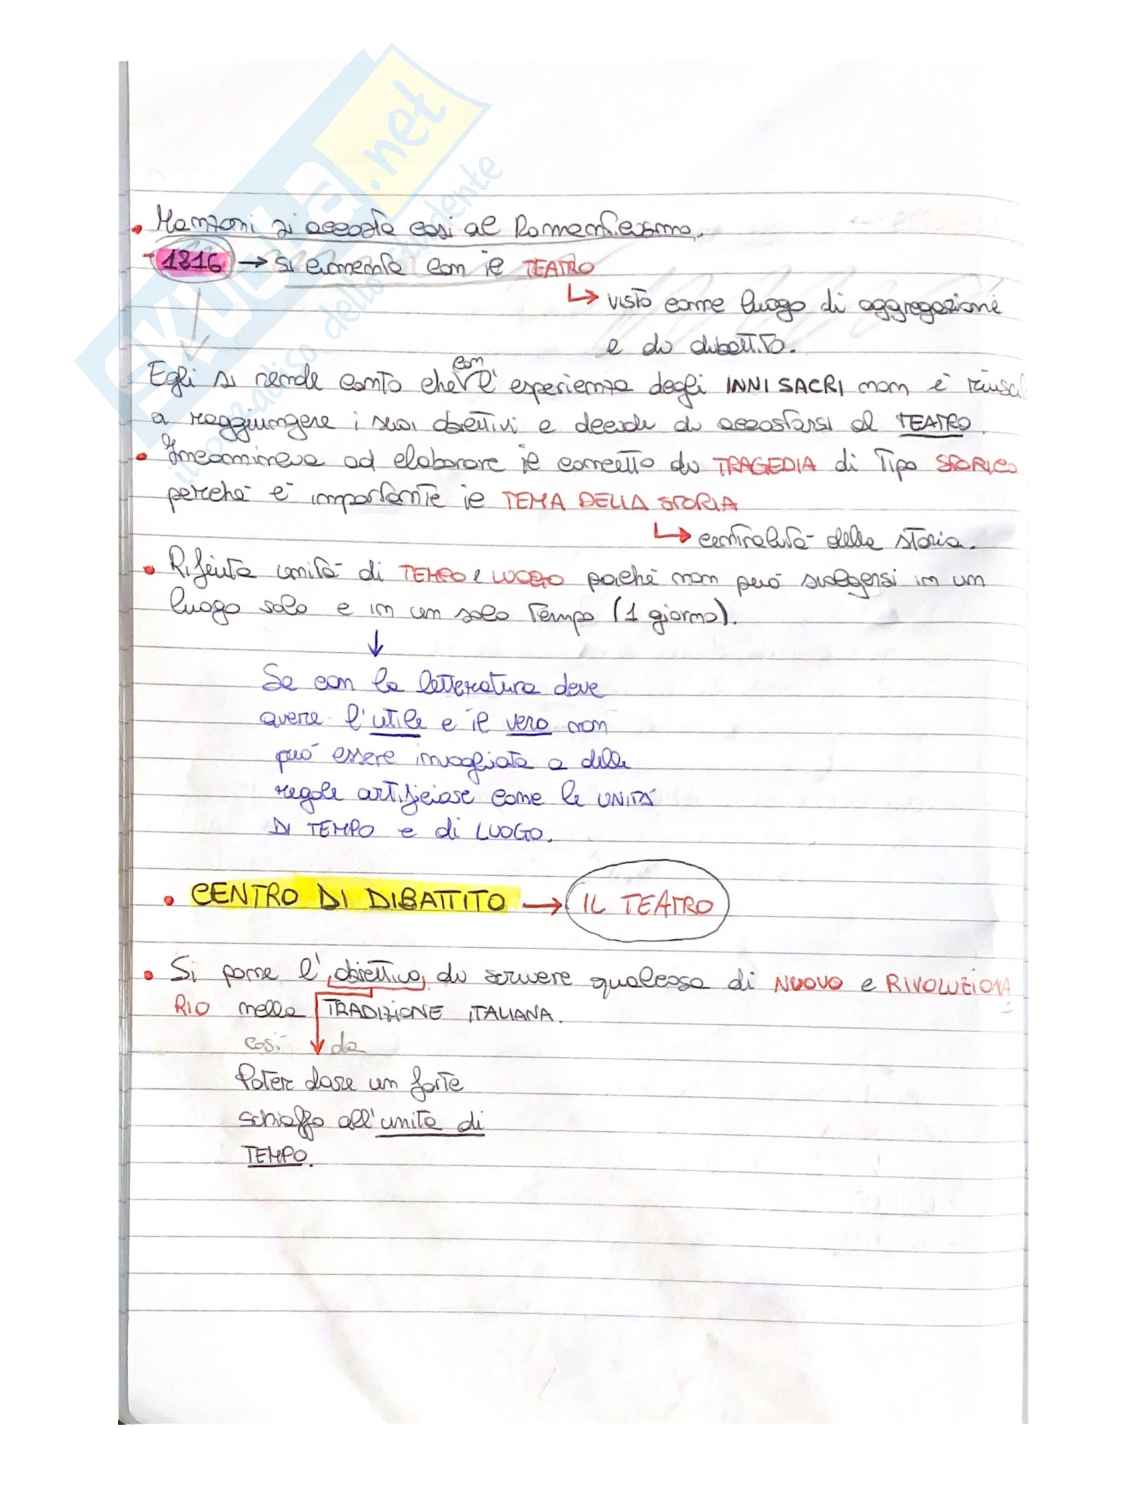 SKUOLA.net
il paradiso dello studente
• Manzoni si accosta così al Romanticismo.
- 1816 → si cimenta con il TEATRO
↳ visto come luogo di aggregazione
e di dibattito.
Egli si rende conto che con l'esperienza degli INNI SACRI non è riusci
a raggiungere i suoi obiettivi e decide di accostarsi al TEATRO.
• Incomincia ad elaborare il concetto di TRAGEDIA di Tipo STORICO
perché è importante il TEMA DELLA STORIA
↳ centralità della storia.
• Rifiuta unità di TEMPO e LUOGO poiché non può svolgersi in un
luogo solo e in un solo Tempo (1 giorno).
↓
Se con la letteratura deve
avere l'utile e il vero non
può essere invogliata a delle
regole artificiose come le UNITÀ
DI TEMPO e di LUOGO.
• CENTRO DI DIBATTITO → IL TEATRO
• Si pone l'obiettivo di scrivere qualcosa di NUOVO e RIVOLUZIONA
RIO nella TRADIZIONE ITALIANA.
così da
Poter dare un forte
schiaffo all'unità di
TEMPO.